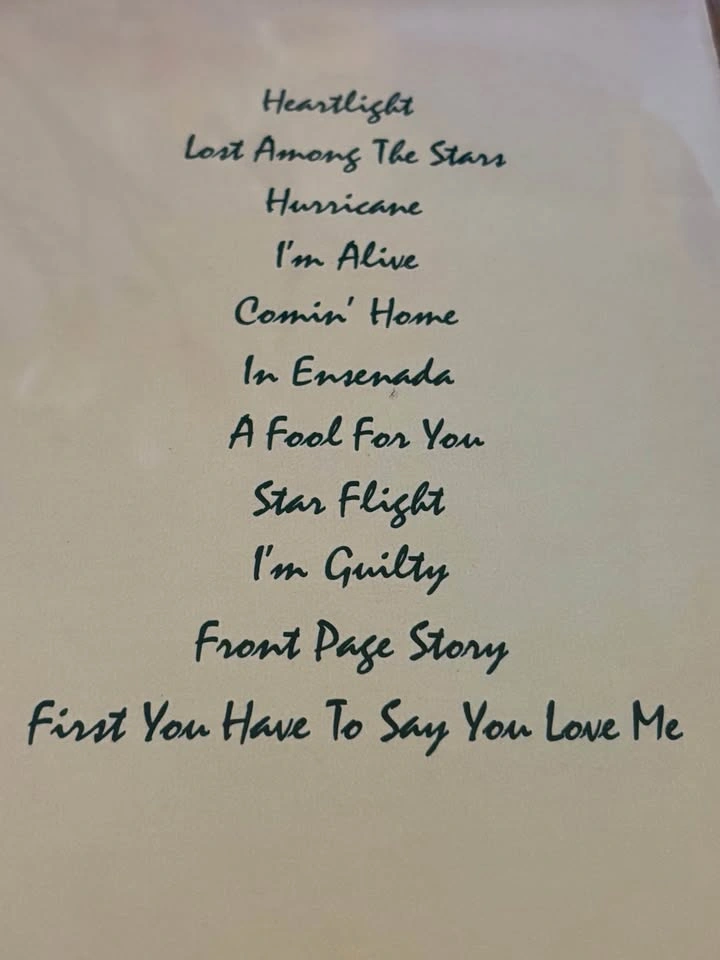 Heartlight
Lost Among The Stars
Hurricane
I'm Alive
Comin' Home
In Ensenada
A Fool For You
Star Flight
I'm Guilty
Front Page Story
First You Have To Say You Love Me